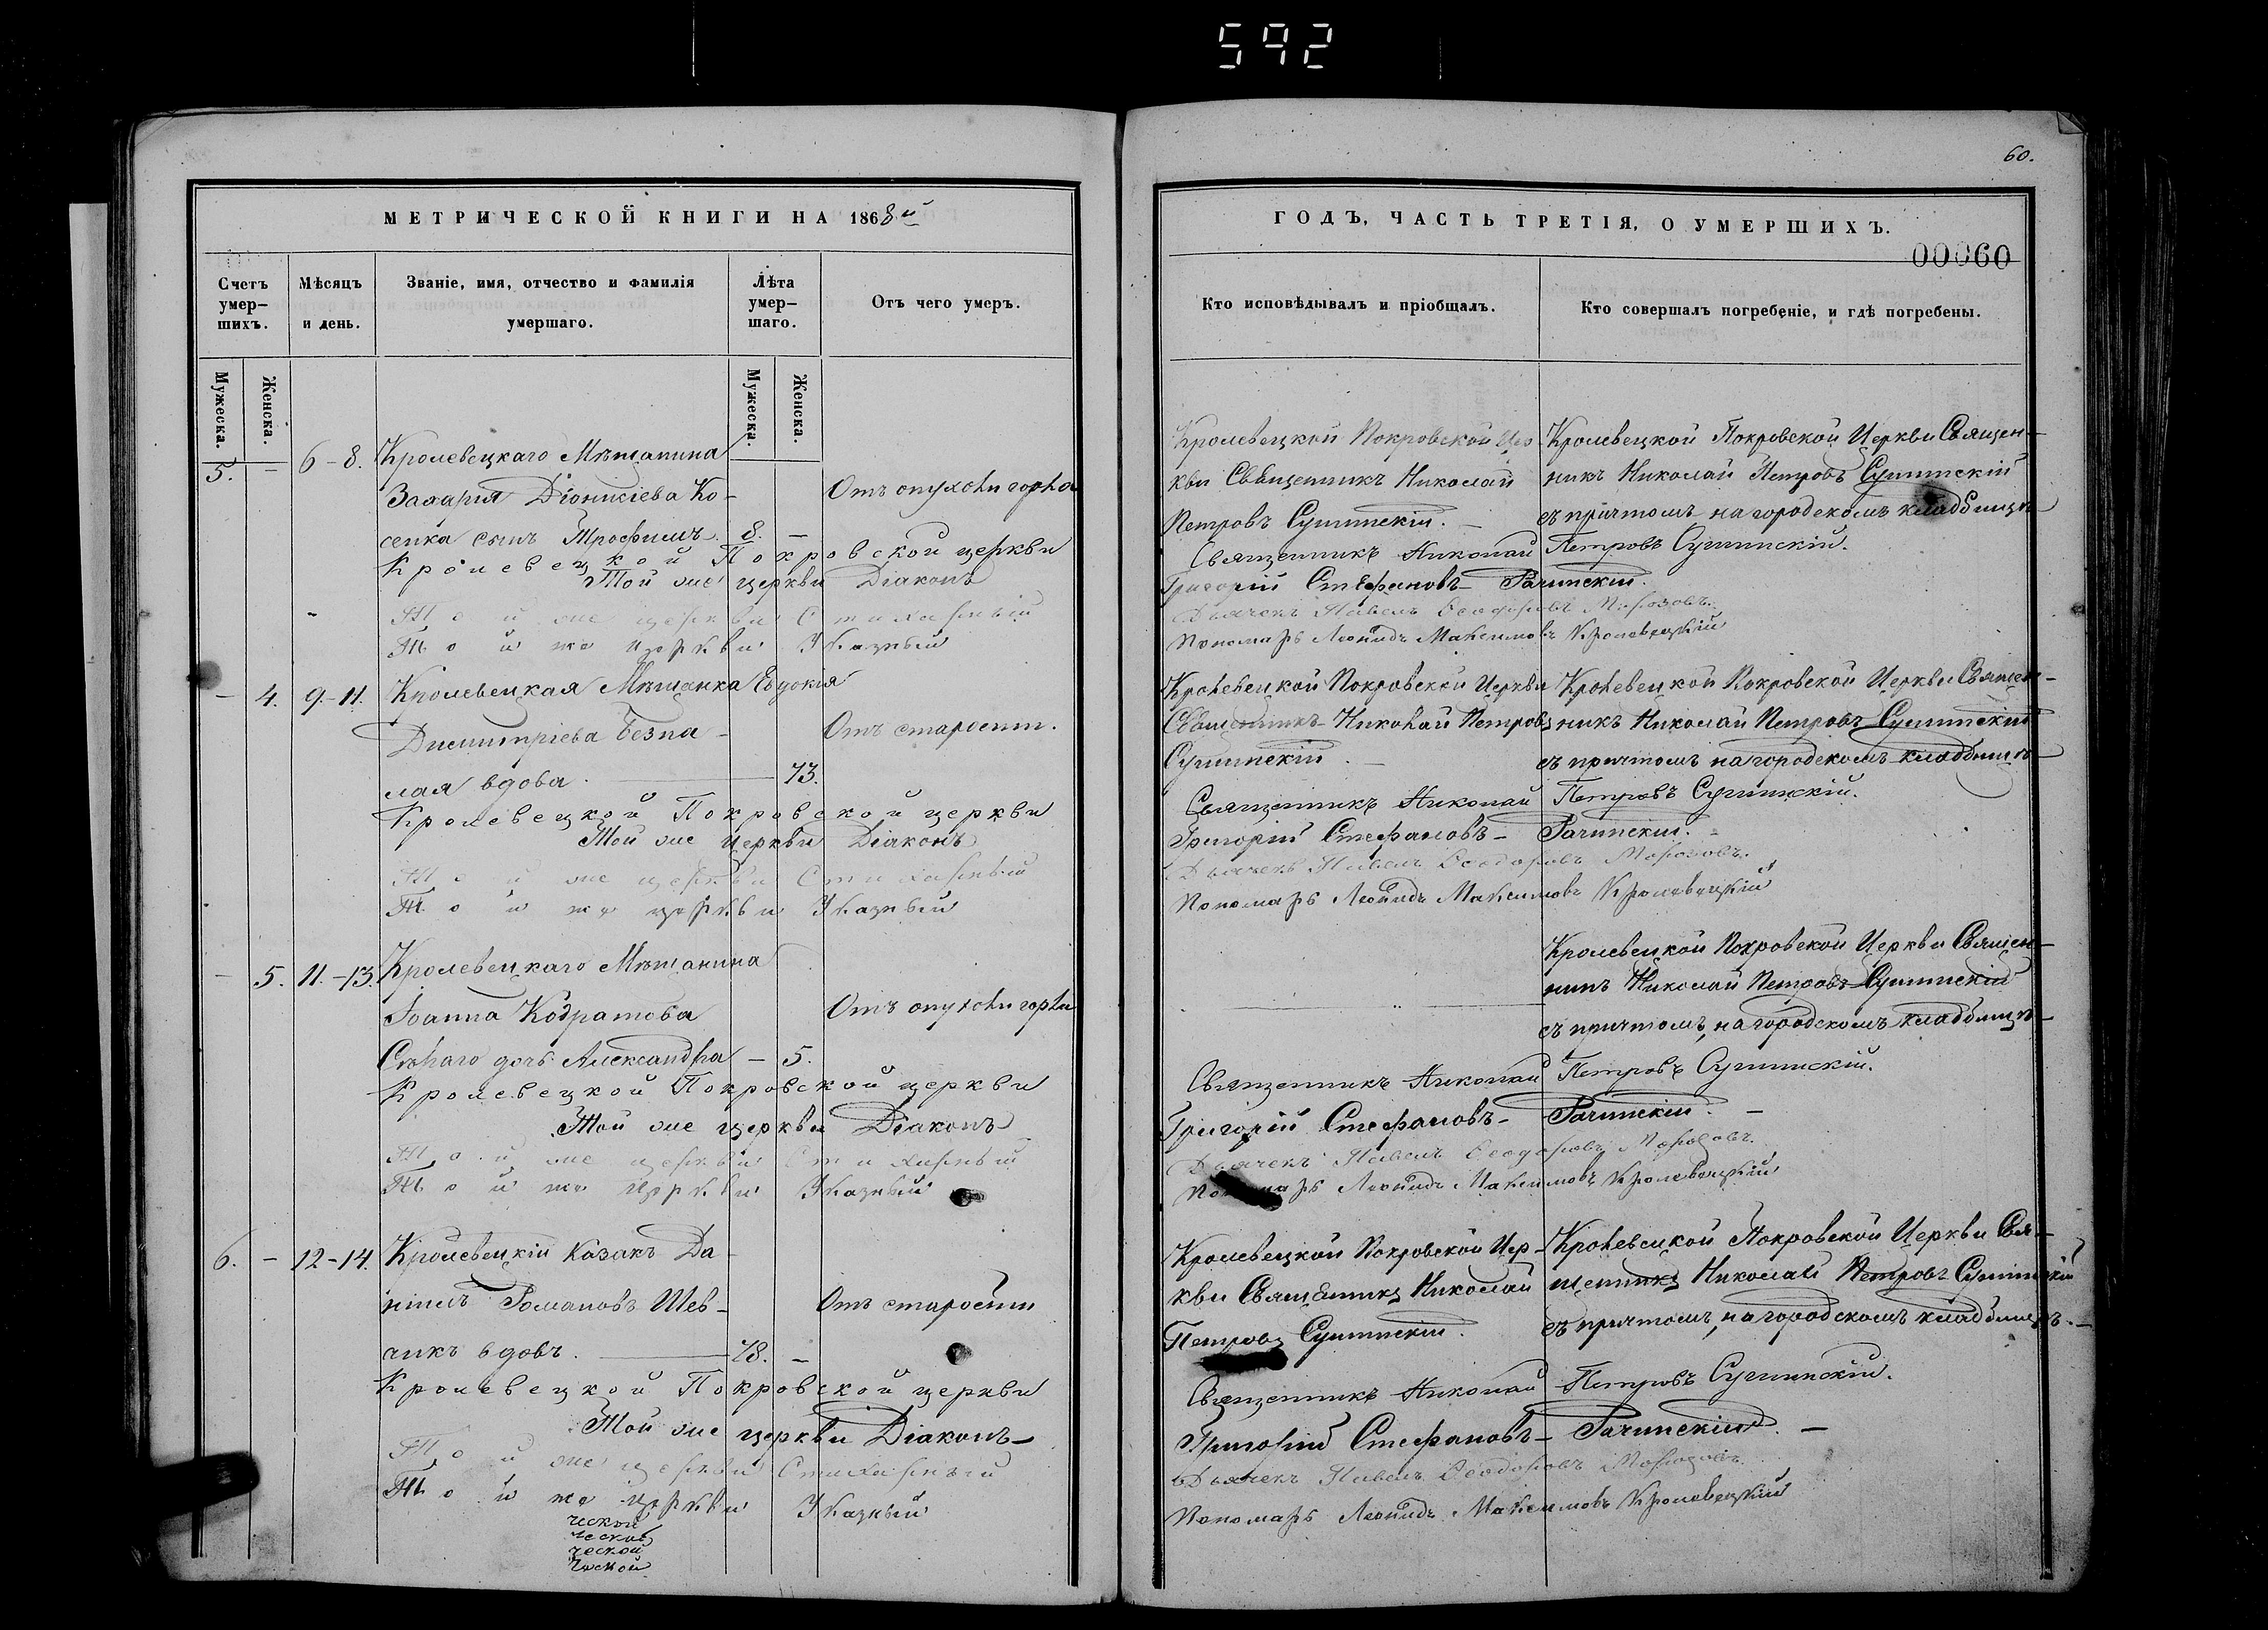 592
60.
МЕТРИЧЕСКОЙ КНИГИ НА 1868й
ГОДЪ, ЧАСТЬ ТРЕТІЯ, О УМЕРШИХЪ.
00060
Счетъ умер-шихъ.
Мѣсяцъ и день.
Званіе, имя, отчество и фамилія умершаго.
Лѣта умер-шаго.
Отъ чего умеръ.
Кто исповѣдывалъ и пріобщалъ.
Кто совершалъ погребеніе, и гдѣ погребены.
Мужеска.
Женска.
Мужеска.
Женска.
5. – 6-8. Кролевецкаго Мѣщанина
Захарія Діонисіева Ко-
сенка сынъ Трофимъ. 8. –
Отъ опухоли горла
Кролевецкой Покровской Цер-
кви Священникъ Николай
Петровъ
Кролевецкой Покровской Церкви Священ-
никъ Николай Петровъ
съ причтомъ на городскомъ кладбищѣ
Кролевецкой Покровской церкви Священникъ Николай Петровъ
Той же церкви Діаконъ Григорій Стефановъ Рачинскій.
Той же церкви Стихарный Дьячекъ Павелъ Ѳеодоровъ Морозовъ.
Той же церкви Указный Пономарь Леонидъ Максимовъ Кролевецкій
– 4. 9-11. Кролевецкая Мѣщанка Евдокія
Димитріева Безпа-
лая вдова. 73.
Отъ старости.
Кролевецкой Покровской Церкви
Священникъ Николай Петровъ
Кролевецкой Покровской Церкви Священ-
никъ Николай Петровъ
съ причтомъ на городскомъ кладбищѣ
Кролевецкой Покровской церкви Священникъ Николай Петровъ
Той же церкви Діаконъ Григорій Стефановъ – Рачинскій.
Той же церкви Стихарный Дьячекъ Павелъ Ѳеодоровъ Морозовъ.
Той же церкви Указный Пономарь Леонидъ Максимовъ Кролевецкій
– 5. 11-13. Кролевецкаго Мѣщанина
Іоанна Кодратова
дочь Александра – 5.
Отъ опухоли горла
Кролевецкой Покровской Церкви Священ-
никъ Николай Петровъ
съ причтомъ, на городскомъ кладбищѣ
Кролевецкой Покровской церкви Священникъ Николай Петровъ
Той же церкви Діаконъ Григорій Стефановъ – Рачинскій. –
Той же церкви Стихарный Дьячекъ Павелъ Ѳеодоровъ Морозовъ.
Той же церкви Указный Пономарь Леонидъ Максимовъ Кролевецкій
6. – 12-14. Кролевецкій Казакъ Да-
ніилъ Романовъ Шев-
чикъ вдовъ. 78. –
Отъ старости
Кролевецкой Покровской Цер-
кви Священникъ Николай
Петровъ
Кролевецкой Покровской Церкви Свя-
щенникъ Николай Петровъ
съ причтомъ, на городскомъ кладбищѣ.
Кролевецкой Покровской церкви Священникъ Николай Петровъ
Той же церкви Діаконъ – Григорій Стефановъ – Рачинскій. –
Той же церкви Стихарный Дьячекъ Павелъ Ѳеодоровъ Морозовъ.
Той же церкви Указный Пономарь Леонидъ Максимовъ Кролевецкій
ческой
ческой
ческой
ческой